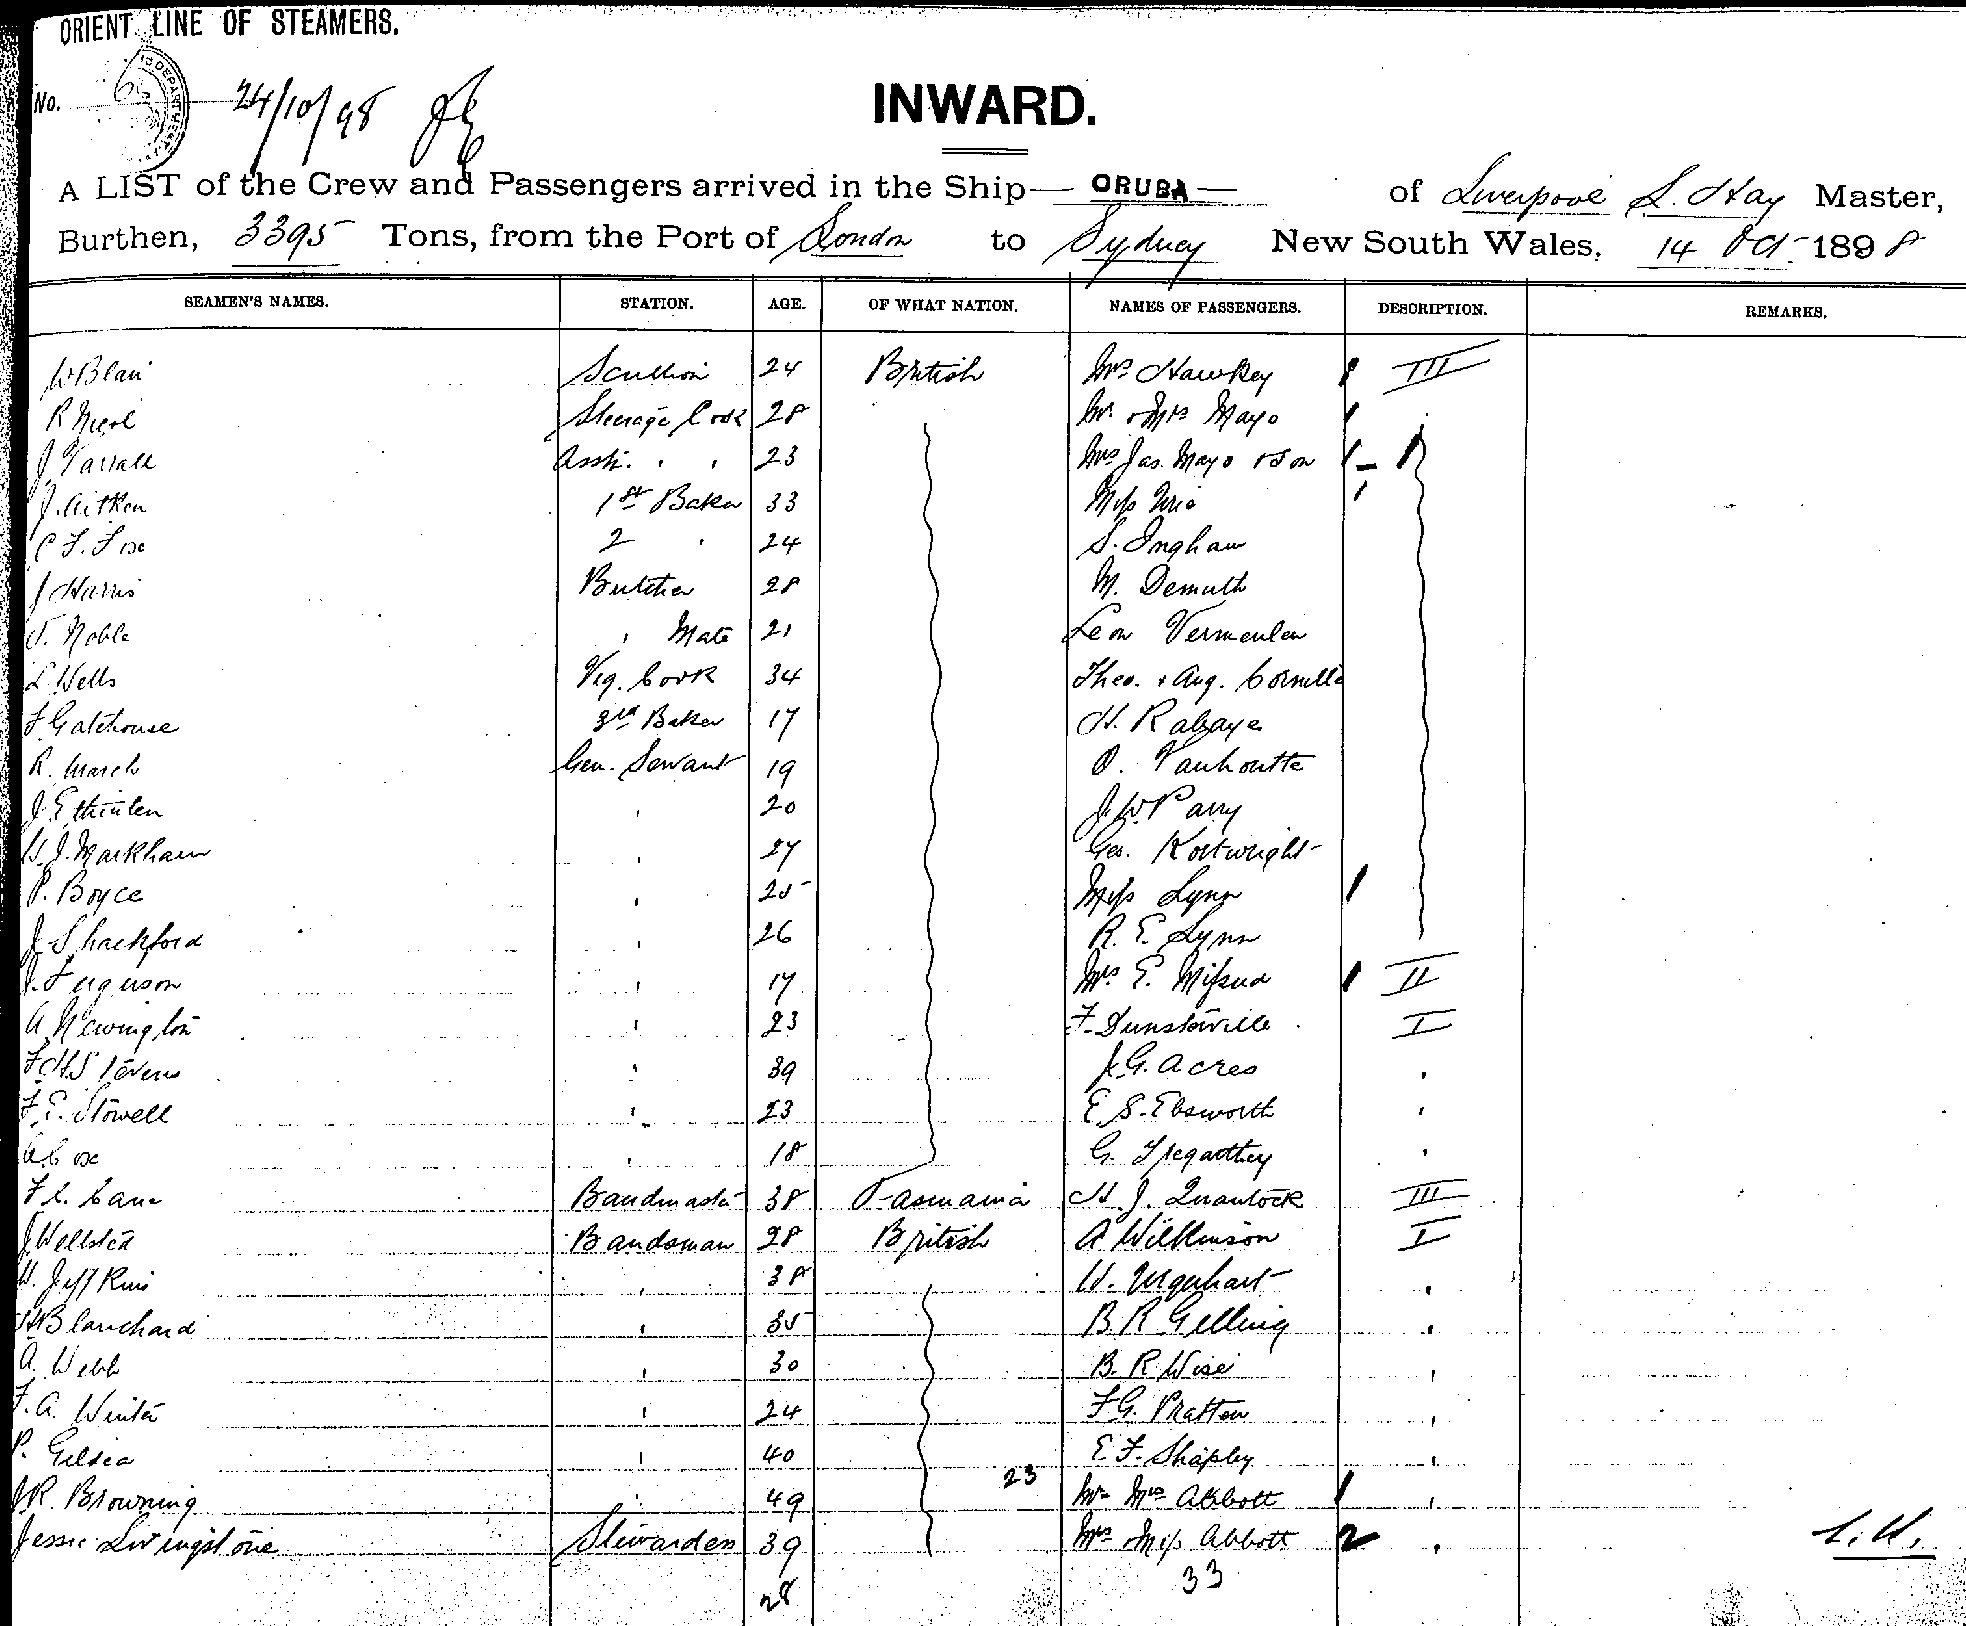 ORIENT LINE OF STEAMERS.
No. 24/10/98
INWARD.
A LIST of the Crew and Passengers arrived in the Ship— ORUBA — of Liverpool S. Hay Master,
Burthen, 3395 Tons, from the Port of London to Sydney New South Wales, 14 Oct 1898
SEAMEN'S NAMES. STATION. AGE. OF WHAT NATION. NAMES OF PASSENGERS. DESCRIPTION. REMARKS.
W Blair Scullion 24 British Mrs Hawkey 1 III
R Steerage Cook 28 Mr & Mrs Mayo 1
J. Asst. " " 23 Mrs Jas. Mayo & Son 1 - 1
J. Aitken 1st Baker 33 Miss 1
C F. Fox 2 " 24 S. Ingham
J Harris Butcher 28 M. Demuth
Noble " Mate 21 Leon Vermeulen
Wells Veg. Cook 34 Theo. & Aug. Cornelle
F Gatehouse 3rd Baker 17 H. Rabaye
R. March Gen. Servant 19 O. Vanhoutte
J. " 20 J. W. Parry
W. J. Markham " 27 Geo. Kortwright
P. Boyce " 25 Miss Lynn 1
J. Shackford " 26 R. E. Lynn
J. Ferguson " 17 Mrs E. Mifsud 1 II
A. Newington " 23 F. Dunsterville I
F. H. Stevens " 39 J. G. Acres "
F. E. Stowell " 23 E. S. Ebsworth "
A. Cox " 18 G. Tregarthey "
F. C. Cane Bandmaster 38 Tasmania H. J. Quantock III
J. Wellsted Bandsman 28 British A Wilkinson I
W. Jeffkins " 38 W. Urquhart "
H Blanchard " 35 B. R Gelling "
A. Webb " 30 B. R Wise "
F. A. Winter " 24 F G. Pratten "
P. Gildea " 40 E. F. Shapley "
23
J R. Browning " 49 Mr Mrs Abbott 1 "
Jessie Livingstone Stewardess 39 Mrs & Miss Abbott 2 "
28 33